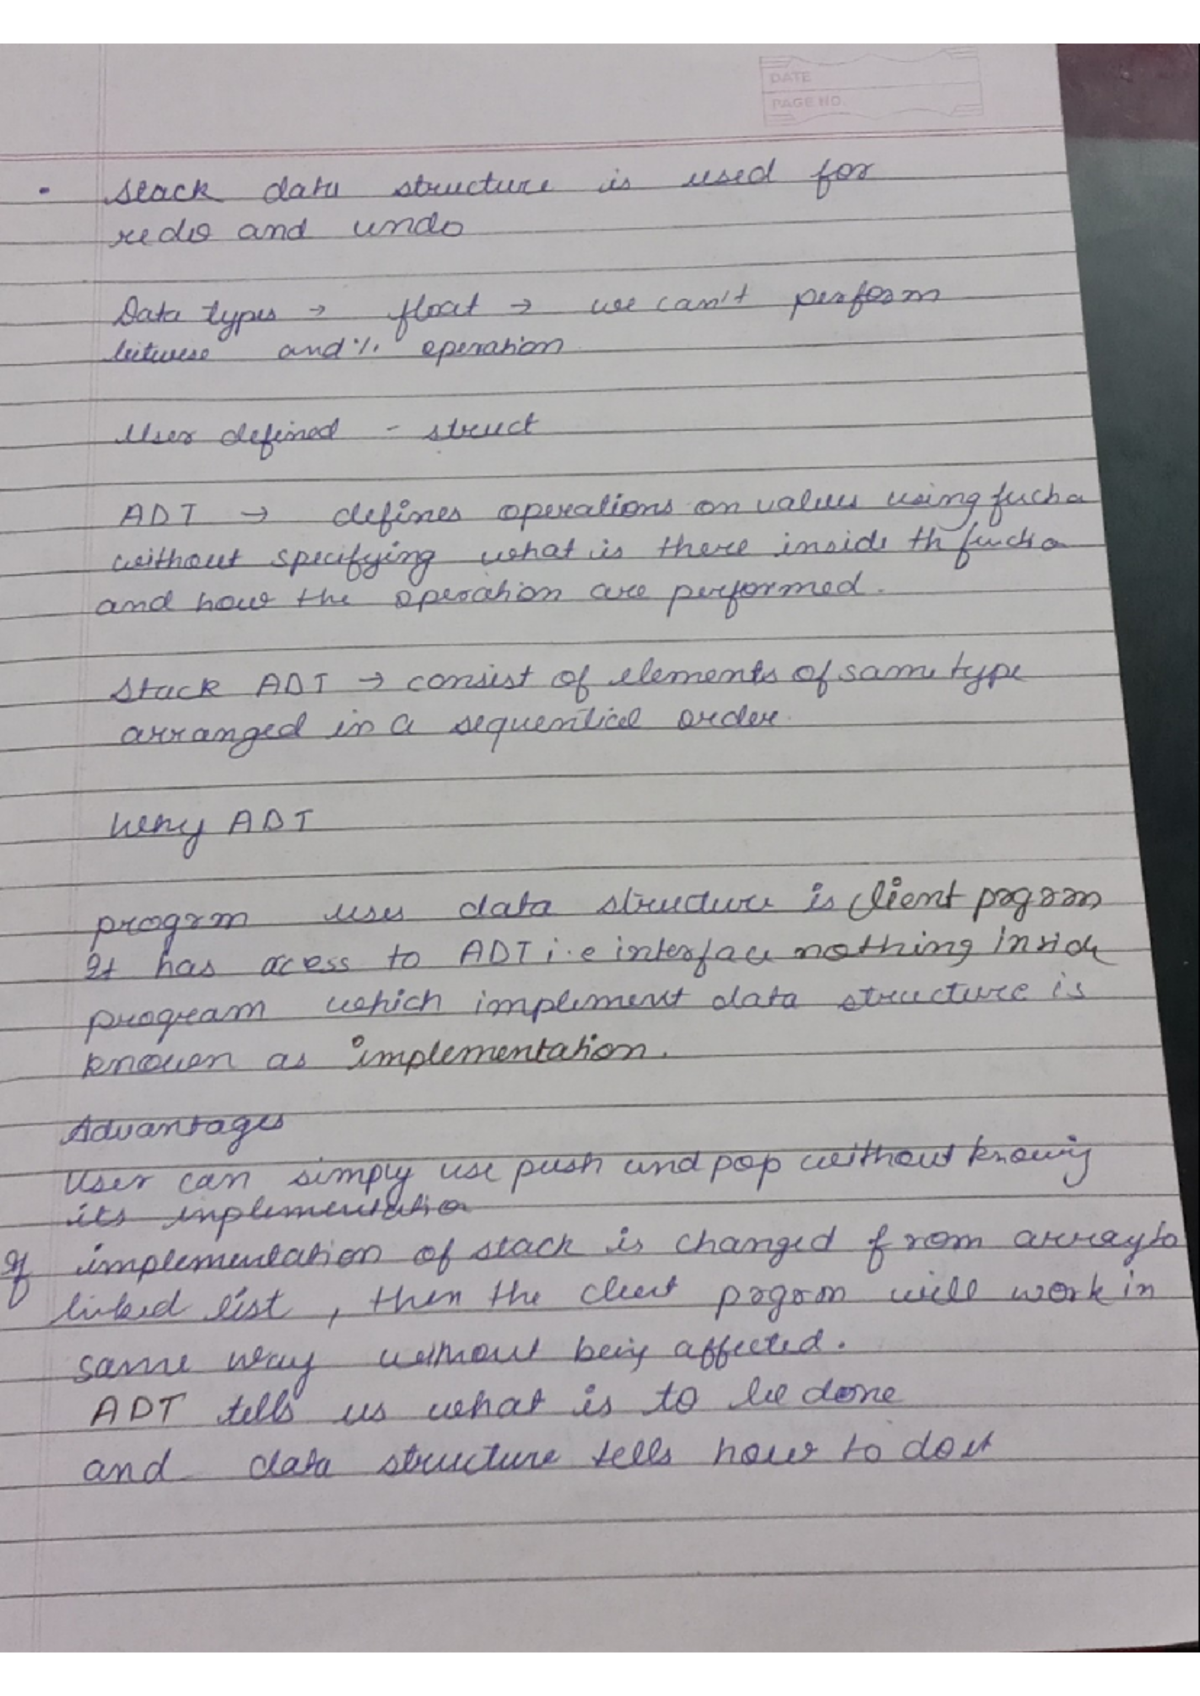 DATE
PAGE NO.
• Stack data structure is used for
redo and undo
Data types → float → we can't perform
bitwise and % operation
User defined - struct
ADT → defines operations on values using
without specifying what is there inside th
and how the operation are performed.
Stack ADT → consist of elements of same type
arranged in a sequential order.
Why ADT
progrm uses data structure is client pogram
It has acess to ADT i.e interface nothing inside
program which implement data structure is
known as implementation.
Advantages
User can simply use push and pop without knowing
its implementation
If implementation of stack is changed from array to
linked list, then the client pogram will work in
same way without being affected.
ADT tells us what is to be done
and data structure tells how to do it